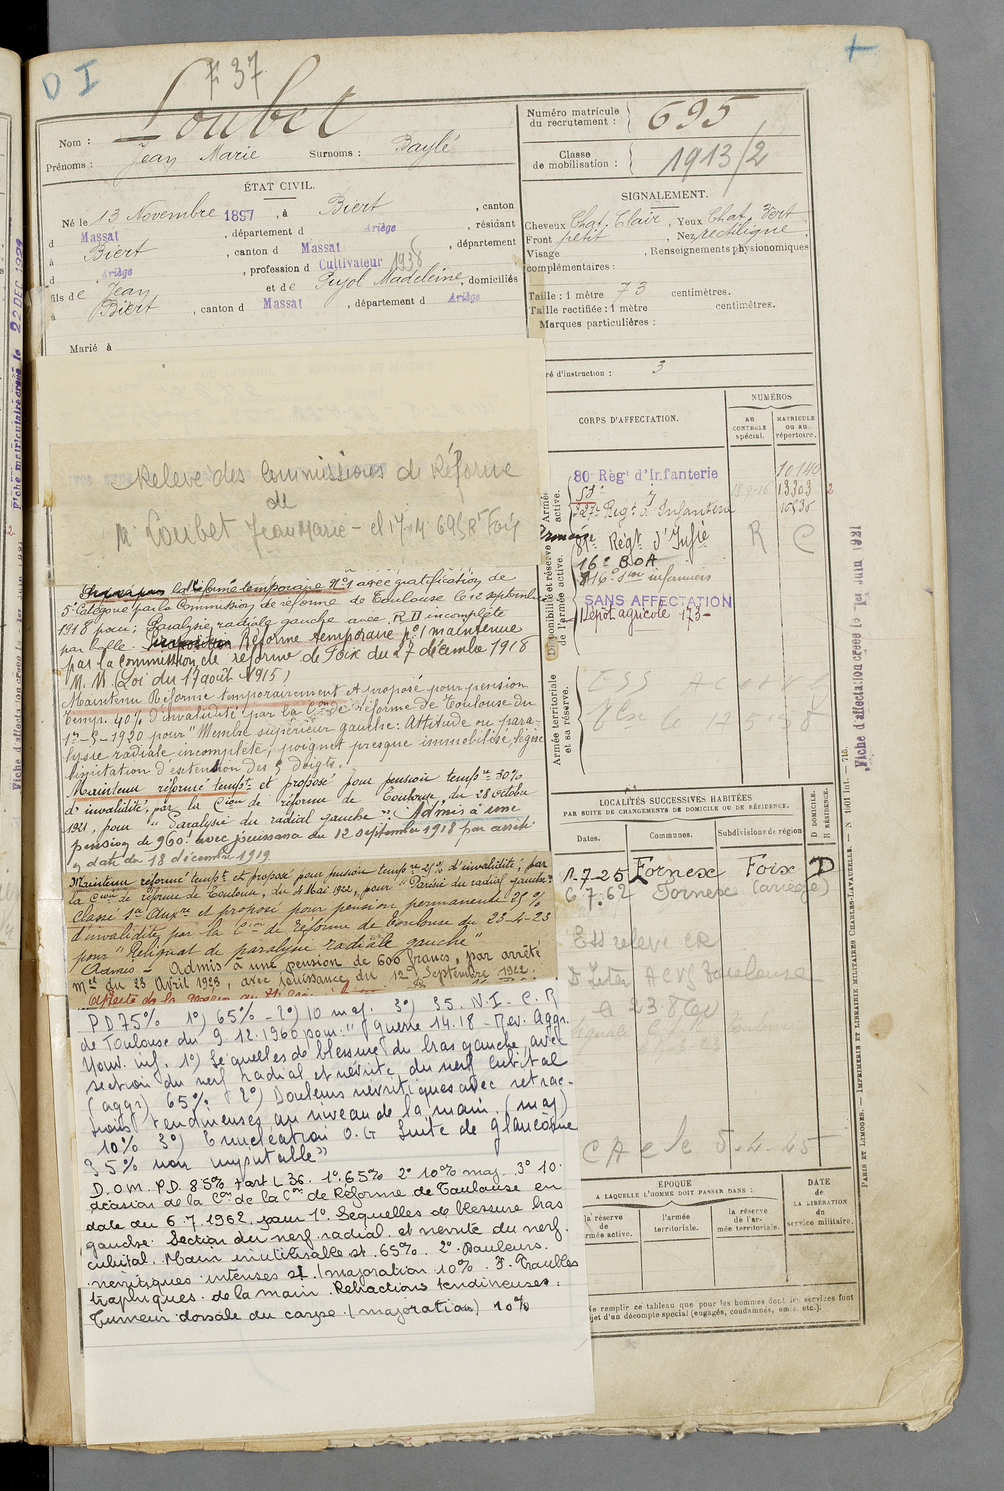 D I
F 37
Nom : Loubet
Prénoms : Jean Marie Surnoms : Baylé
Numéro matricule du recrutement : 695
Classe de mobilisation : 1913/2
ÉTAT CIVIL.
Né le 13 Novembre 1897, à Biert, canton
d Massat, département d Ariège, résidant
à Biert, canton d Massat, département
d Ariège, profession d Cultivateur 1938
fils de Jean et de Pujol Madeleine, domiciliés
à Biert, canton d Massat, département d Ariège
Marié à
SIGNALEMENT.
Cheveux Chat. Clair, Yeux Chat. Vert
Front petit, Nez rectiligne
Visage , Renseignements physionomiques
complémentaires :
Taille : 1 mètre 73 centimètres.
Taille rectifiée : 1 mètre centimètres.
Marques particulières :
ré d'instruction : 3
Releve des Commissions de Réforme
de
M. Loubet Jean Marie
la Réforme temporaire N°1 avec gratification de
5e Catégorie par la Commission de réforme de Toulouse le 12 septembre
1918 pour : Paralysie radiale gauche avec R D incomplète
par balle. Réforme temporaire n°1 maintenue
par la commission de réforme de Foix du 27 décembre 1918
(Loi du 17 août 1915)
Maintenu Réforme temporairement et proposé pour pension
temp. 40% d'invalidité par la Con de réforme de Toulouse du
1er-5-1920 pour "Membre supérieur gauche : Attitude en para-
lysie radiale incomplète, poignet presque immobilisé, légère
limitation d'extension des 5 doigts.
Maintenu réformé tempt et proposé pour pension tempre 30%
d'invalidité, par la Cion de réforme de Toulouse, du 28 octobre
1921, pour "Paralysie du radial gauche". Admis à une
pension de 960f avec jouissance du 12 septembre 1918 par arrêté
en date du 18 décembre 1919
Maintenu réformé tempt et proposé pour pension tempre 25% d'invalidité, par
la Cion de réforme de Toulouse, du 4 Mai 1922, pour "Parésie du radial gauche"
Classé 1re Auxre et proposé pour pension permanente 25%
d'invalidité par la Cion de réforme de Toulouse du 23-4-23
pour "Reliquat de paralysie radiale gauche"
Admis à une pension de 600 francs, par arrêté
mel du 23 Avril 1923, avec jouissance du 12 Septembre 1922.
P D 75% 1°) 65% - 2°) 10 maj. 3°) 35. N.I - C.R
de Toulouse du 9.12.1960 pour : "Guerre 14.18 - Rev. Aggr.
1°) Séquelles de blessure du bras gauche avec
section du nerf radial et névrite du nerf cubital
(aggr) 65% 2°) Douleurs névritiques avec rétrac-
tions tendineuses au niveau de la main. (maj)
10% 3°) Enucléation O.G Suite de glaucome
35% non imputable"
D.O.M. P.D. 85% + art L 36. 1° 65% 2° 10% maj. 3° 10.
décision de la Con de la Con de Réforme de Toulouse en
date du 6.7.1962. pour 1°. Séquelles de blessure bras
gauche. Section du nerf radial et névrite du nerf
cubital. Main inutilisable 65%. 2°. Douleurs
névritiques intenses (majoration 10%. 3° Troubles
trophiques de la main. Rétractions tendineuses.
Tumeur dorsale du carpe (majoration) 10%
CORPS D'AFFECTATION.
NUMÉROS
au CONTROLE spécial.
MATRICULE ou au répertoire.
Armée active.
80 Règt d'Infanterie 10140
53e 13303
Regt d'Infanterie
Disponibilité et réserve de l'armée active.
Régt d'Infie R C
16e S O A
infirmiers
SANS AFFECTATION
Dépôt agricole 173
Armée territoriale et sa réserve.
LOCALITÉS SUCCESSIVES HABITÉES
PAR SUITE DE CHANGEMENTS DE DOMICILE OU DE RÉSIDENCE.
Dates. Communes. Subdivisions de région D DOMICILE. R RÉSIDENCE.
7-25 Fornex Foix D
6.7.62 Fornex (ariège)
C A C le 5.4.45
ÉPOQUE
A LAQUELLE L'HOMME DOIT PASSER DANS :
la réserve de l'armée active.
l'armée territoriale.
la réserve de l'armée territoriale.
DATE de LA LIBÉRATION du service militaire.
Ne remplir ce tableau que pour les hommes dont les services font
jet d'un décompte spécial (engagés, condamnés, omis, etc.).
PARIS ET LIMOGES. — IMPRIMERIE ET LIBRAIRIE MILITAIRES CHARLES-LAVAUZELLE. — N° 1601 int. — 715.
Fiche d'affectation créée le 1er Juin 1921
Fiche matriculaire créée le 22 DEC 1921